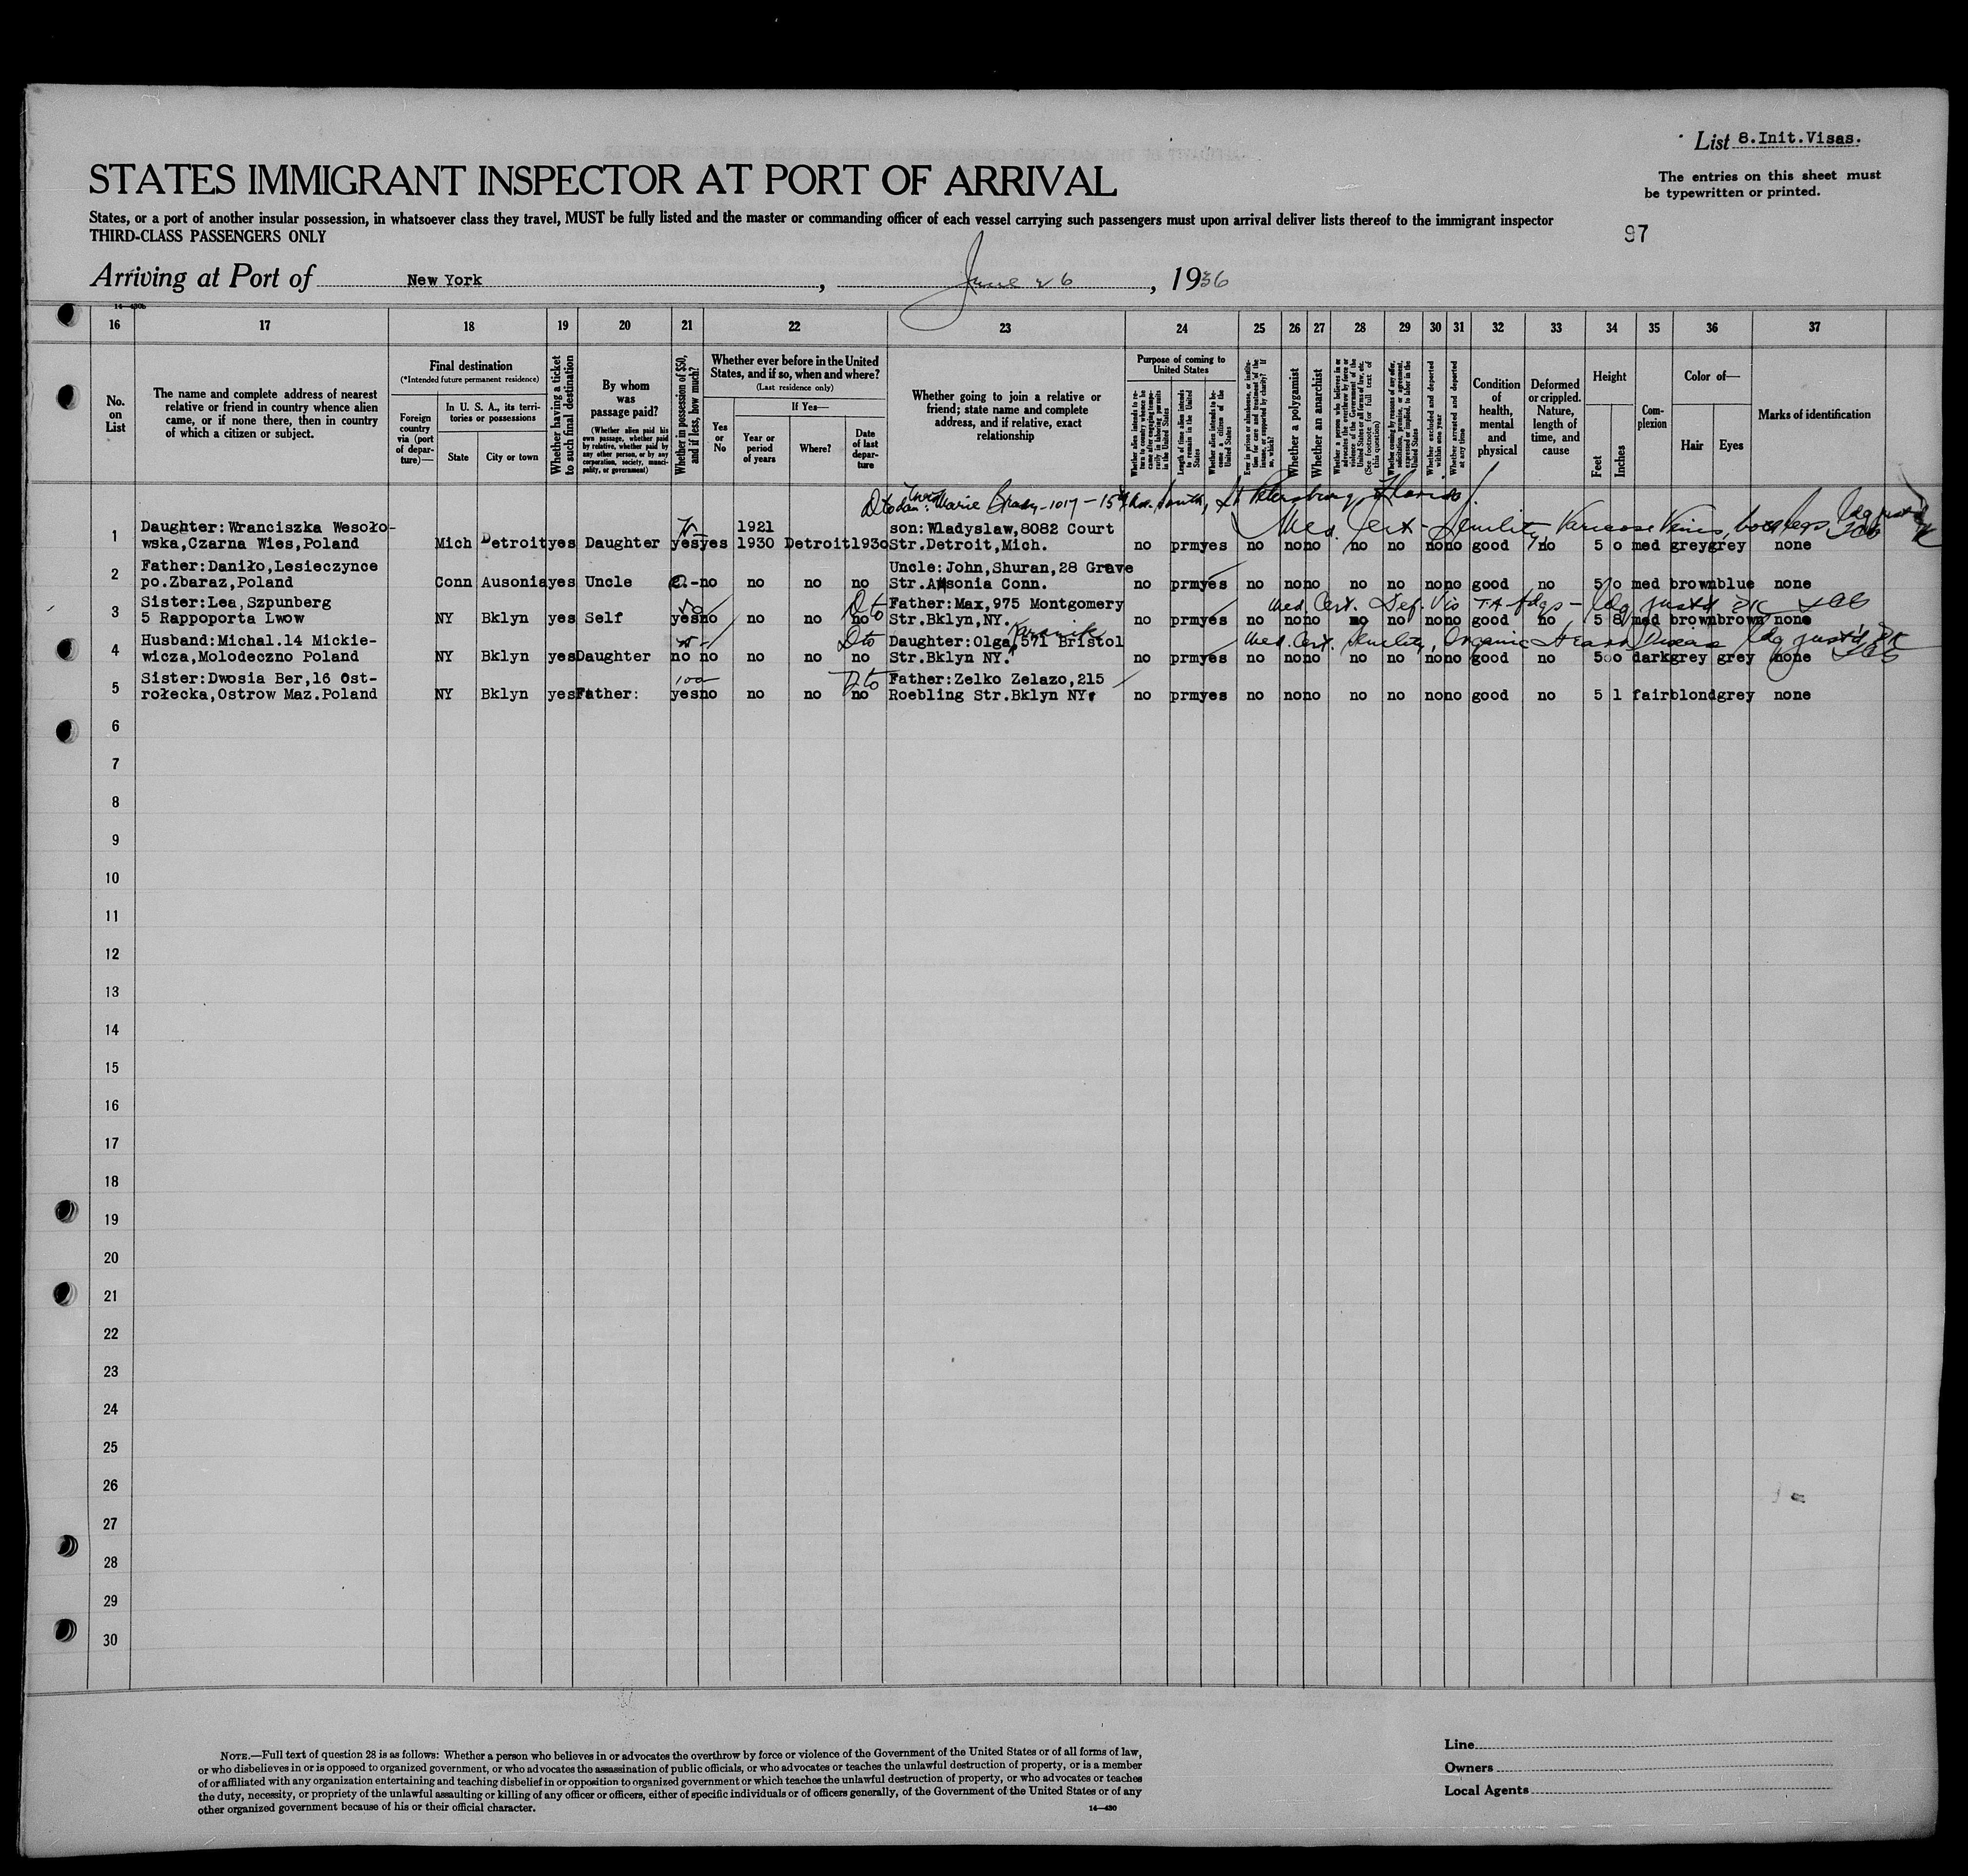 List 8.Init.Visas.
STATES IMMIGRANT INSPECTOR AT PORT OF ARRIVAL
The entries on this sheet must
be typewritten or printed.
States, or a port of another insular possession, in whatsoever class they travel, MUST be fully listed and the master or commanding officer of each vessel carrying such passengers must upon arrival deliver lists thereof to the immigrant inspector
THIRD-CLASS PASSENGERS ONLY
97
Arriving at Port of New York, June 26, 1936
14—430b
16 17 18 19 20 21 22 23 24 25 26 27 28 29 30 31 32 33 34 35 36 37
No. on List
The name and complete address of nearest
relative or friend in country whence alien
came, or if none there, then in country
of which a citizen or subject.
Final destination
(*Intended future permanent residence)
Foreign country via (port of departure)—
In U. S. A., its territories or possessions
State
City or town
Whether having a ticket to such final destination
By whom was passage paid?
(Whether alien paid his own passage, whether paid by relative, whether paid by any other person, or by any corporation, society, municipality, or government)
Whether in possession of $50, and if less, how much?
Whether ever before in the United States, and if so, when and where?
(Last residence only)
Yes or No
If Yes—
Year or period of years
Where?
Date of last departure
Whether going to join a relative or
friend; state name and complete
address, and if relative, exact
relationship
Purpose of coming to United States
Whether alien intends to return to country whence he came after engaging temporarily in laboring pursuits in the United States
Length of time alien intends to remain in the United States
Whether alien intends to become a citizen of the United States
Ever in prison or almshouse, or institution for care and treatment of the insane, or supported by charity? If so, which?
Whether a polygamist
Whether an anarchist
Whether a person who believes in or advocates the overthrow by force or violence of the Government of the United States or all forms of law, etc. (See footnote for full text of this question)
Whether coming by reason of any offer, solicitation, promise, or agreement, expressed or implied, to labor in the United States
Whether excluded and deported within one year
Whether arrested and deported at any time
Condition of health, mental and physical
Deformed or crippled. Nature, length of time, and cause
Height
Feet
Inches
Complexion
Color of—
Hair
Eyes
Marks of identification
Marie Brady-1017-15th South, St Petersburg Florida
Med Cert - Senility Varicose Veins, bow legs
1 Daughter:Wranciszka Wesoło- 1921 son:Wladyslaw,8082 Court
wska,Czarna Wies,Poland Mich Detroit yes Daughter yes yes 1930 Detroit 1930 Str.Detroit,Mich. no prm yes no no no no no no no good no 5 0 med grey grey none
2 Father:Daniło,Lesieczynce Uncle:John,Shuran,28 Grave
po.Zbaraz,Poland Conn Ausonia yes Uncle no no no no Str.Ansonia Conn. no prm yes no no no no no no no good no 5 0 med brown blue none
3 Sister:Lea,Szpunberg 50 Dto Father:Max,975 Montgomery Med. Cert. Def. Vis
5 Rappoporta Lwow NY Bklyn yes Self yes no no no no Str.Bklyn,NY. no prm yes no no no no no no no good no 5 8 med brown brown none
4 Husband:Michal.14 Mickie- Dto Daughter:Olga,571 Bristol Med. Cert. Senility, Organic Heart Disease
wicza,Molodeczno Poland NY Bklyn yes Daughter no no no no no Str.Bklyn NY. no prm yes no no no no no no no good no 5 0 dark grey grey none
5 Sister:Dwosia Ber,16 Ost- 100 Dto Father:Zelko Zelazo,215
rołecka,Ostrow Maz.Poland NY Bklyn yes Father: yes no no no no Roebling Str.Bklyn NY. no prm yes no no no no no no no good no 5 1 fair blond grey none
6
7
8
9
10
11
12
13
14
15
16
17
18
19
20
21
22
23
24
25
26
27
28
29
30
NOTE.—Full text of question 28 is as follows: Whether a person who believes in or advocates the overthrow by force or violence of the Government of the United States or of all forms of law,
or who disbelieves in or is opposed to organized government, or who advocates the assassination of public officials, or who advocates or teaches the unlawful destruction of property, or is a member
of or affiliated with any organization entertaining and teaching disbelief in or opposition to organized government or which teaches the unlawful destruction of property, or who advocates or teaches
the duty, necessity, or propriety of the unlawful assaulting or killing of any officer or officers, either of specific individuals or of officers generally, of the Government of the United States or of any
other organized government because of his or their official character.
14—430
Line
Owners
Local Agents